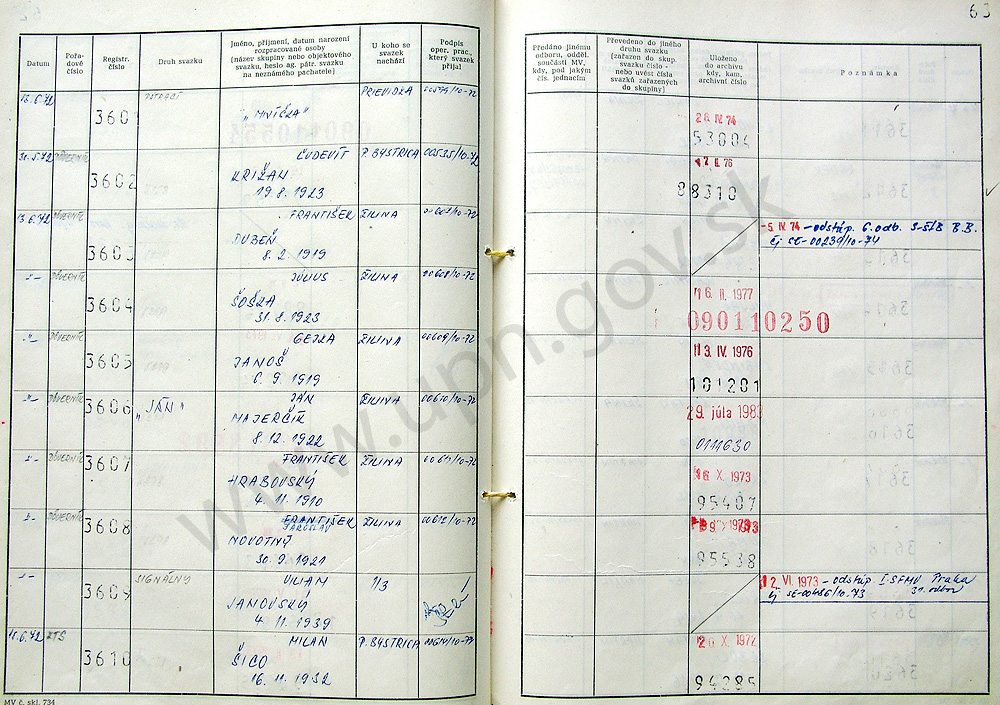 63
Datum
Pořa-
dové
číslo
Registr.
číslo
Druh svazku
Jméno, příjmení, datum narození
rozpracované osoby
(název skupiny nebo objektového
svazku, heslo ag. pátr. svazku
na neznámého pachatele)
U koho se
svazek
nachází
Podpis
oper. prac.,
který svazek
přijal
Předáno jinému
odboru, odděl.
součásti MV,
kdy, pod jakým
čís. jednacím
Převedeno do jiného
druhu svazku
(zařazen do skup.
svazku číslo -
nebo uvést čísla
svazků zařazených
do skupiny)
Uloženo
do archivu
kdy, kam,
archivní číslo
Poznámka
16.6.72
3601
PRIEVIDZA
28. IV 74
53004
31.5.72
3602
ĽUDEVÍT
KRIŽAN
19.8.1923
P. BYSTRICA
00535/10-72
II. 76
88310
13.6.72
DŮVERNÍK
3603
FRANTIŠEK
DUBEŇ
8.2.1919
ŽILINA
00607/10-72
-5. IV. 74 - odstúp. 6. odb. S-ŠtB B.B.
čj SE-00239/10-74
-"-
DŮVERNÍK
3604
JÚLIUS
ŠOŠKA
31.8.1923
ŽILINA
00608/10-72
16. II. 1977
090110250
-"-
DŮVERNÍK
3605
GEJZA
JANOŠ
6.9.1919
ŽILINA
00609/10-72
13. IV. 1976
101201
-"-
DŮVERNÍK
3606
„JÁN"
JÁN
MAJERČÍK
8.12.1922
ŽILINA
00610/10-72
29. júla 1983
0111630
-"-
DŮVERNÍK
3607
FRANTIŠEK
HRABOVSKÝ
4.11.1910
ŽILINA
16 X. 1973
95407
-"-
DŮVERNÍK
3608
FRANTIŠEK
JAROSLAV
NOVOTNÝ
30.9.1921
ŽILINA
00612/10-72
95538
-"-
3609
SIGNÁLNY
VILIAM
JANOVSKÝ
4.11.1939
1/3
12. VI. 1973 - odstúp. I-SFMV Praha
čj SE-00486/10-73 31. odbor
11.6.72
KTS
3610
MILAN
ŠICO
16.11.1932
P. BYSTRICA
X 1972
94285
MV č. skl. 734
www.upn.gov.sk